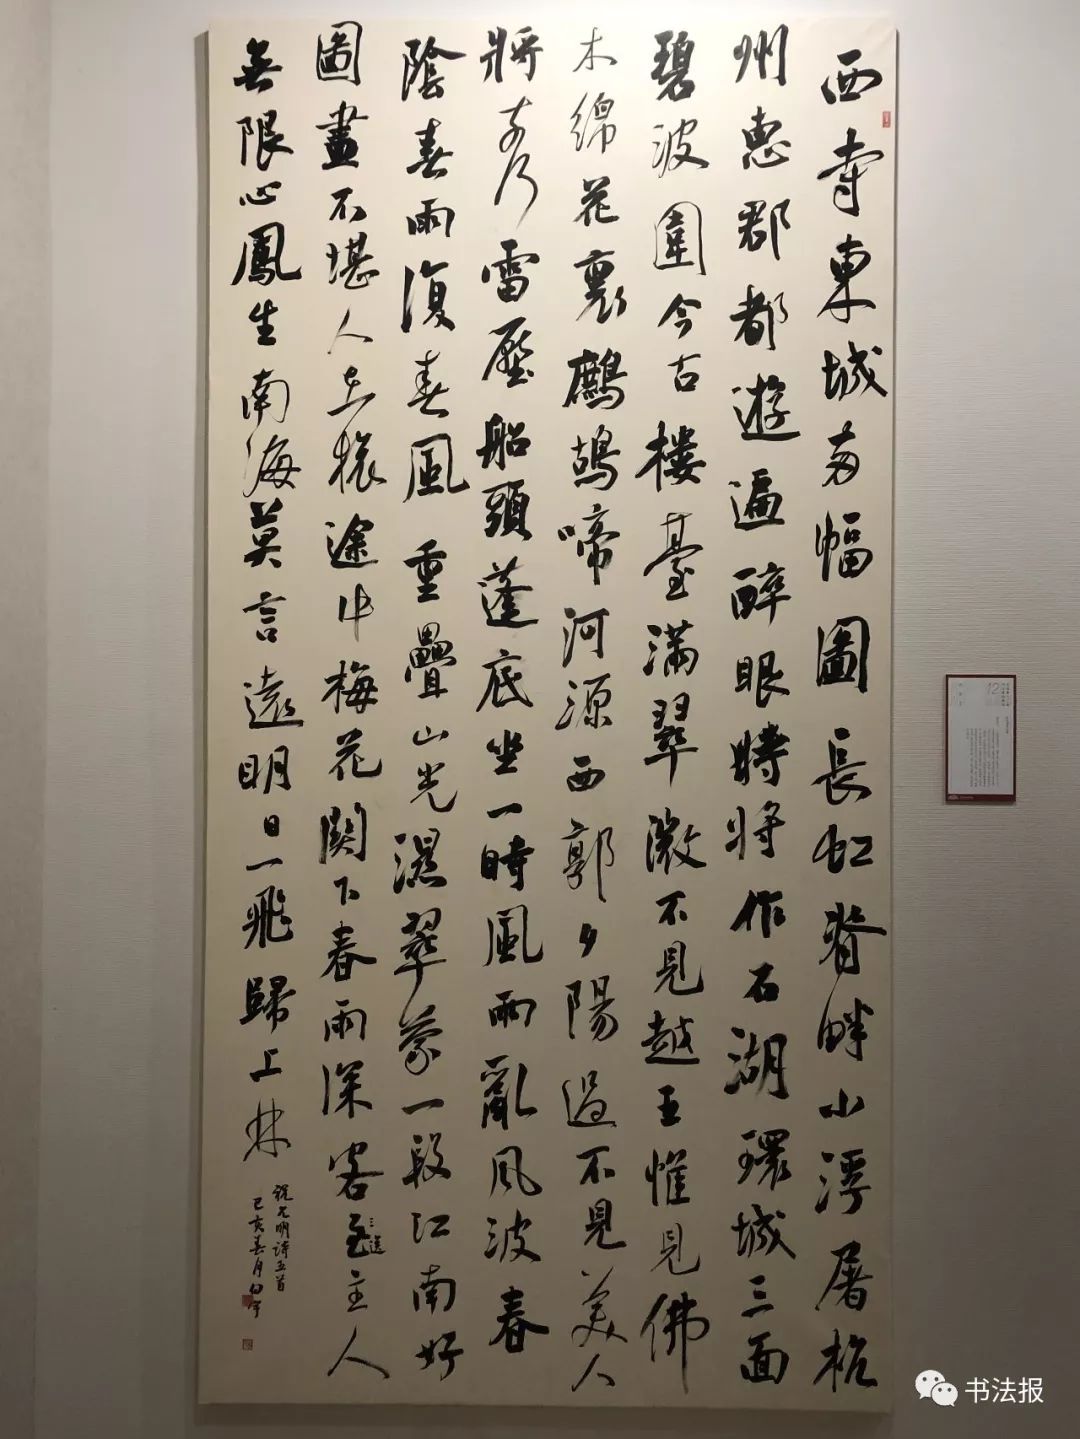 西寺東城兩幅圖長虹脊畔小浮屠杭
州惠郡都遊遍醉眼時將作石湖環城三面
碧波圍今古樓臺滿翠微不見越王惟見佛
木綿花裏鷓鴣啼河源西郭夕陽過不見美人
將奈何雷壓船頭蓬底坐一時風雨亂風波春
陰春雨復春風重疊山光濕翠蒙一段江南好
圖畫不堪人在旅途中梅花関下春雨深客至主人
無限心鳳生南海莫言遠明日一飛歸上林
祝允明詩五首
己亥春月
12
书法报